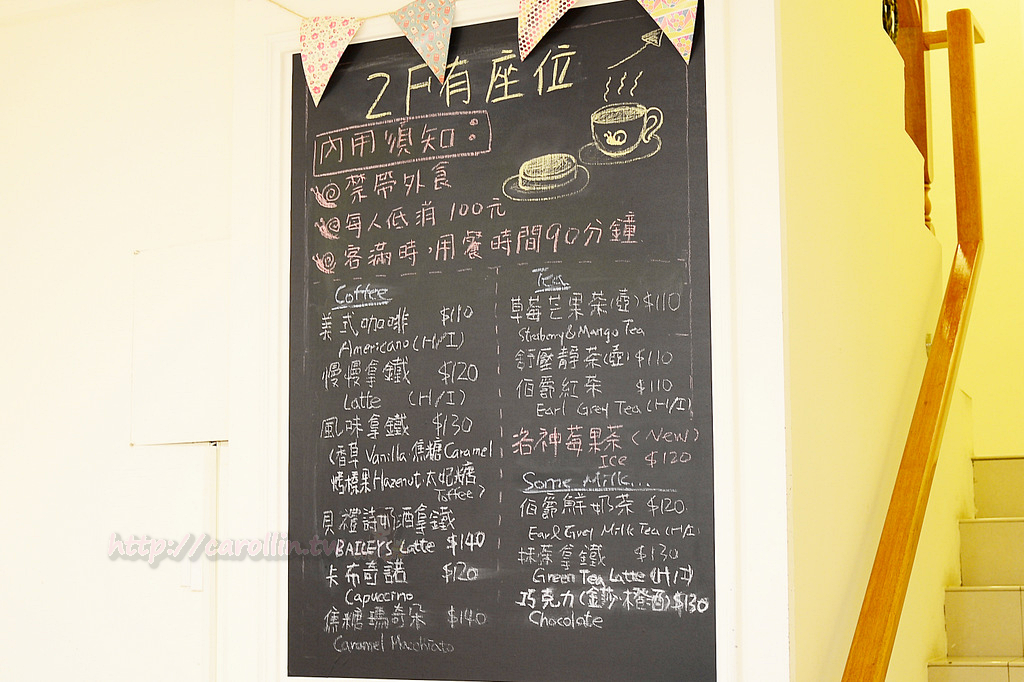 2F有座位
內用須知:
禁帶外食
每人低消100元
客滿時,用餐時間90分鐘
Coffee
美式咖啡 $110
Americano (H/I)
慢慢拿鐵 $120
Latte (H/I)
風味拿鐵 $130
(香草 Vanilla.焦糖 Caramel
烤榛果 Hazenut.太妃糖
Toffee)
貝禮詩奶酒拿鐵
BAILEYS Latte $140
卡布奇諾 $120
Capuccino
焦糖瑪奇朵 $140
Caramel Macchiato
Tea
草莓芒果茶(壺) $110
Strberry & Mango Tea
舒壓靜茶(壺) $110
伯爵紅茶 $110
Earl Grey Tea (H/I)
洛神莓果茶 (New)
Ice $120
Some Milk...
伯爵鮮奶茶 $120
Earl Grey Milk Tea (H/I)
抹茶拿鐵 $130
Green Tea Latte (H/I)
巧克力(金莎.橙酒) $130
Chocolate
http://carollin.tw